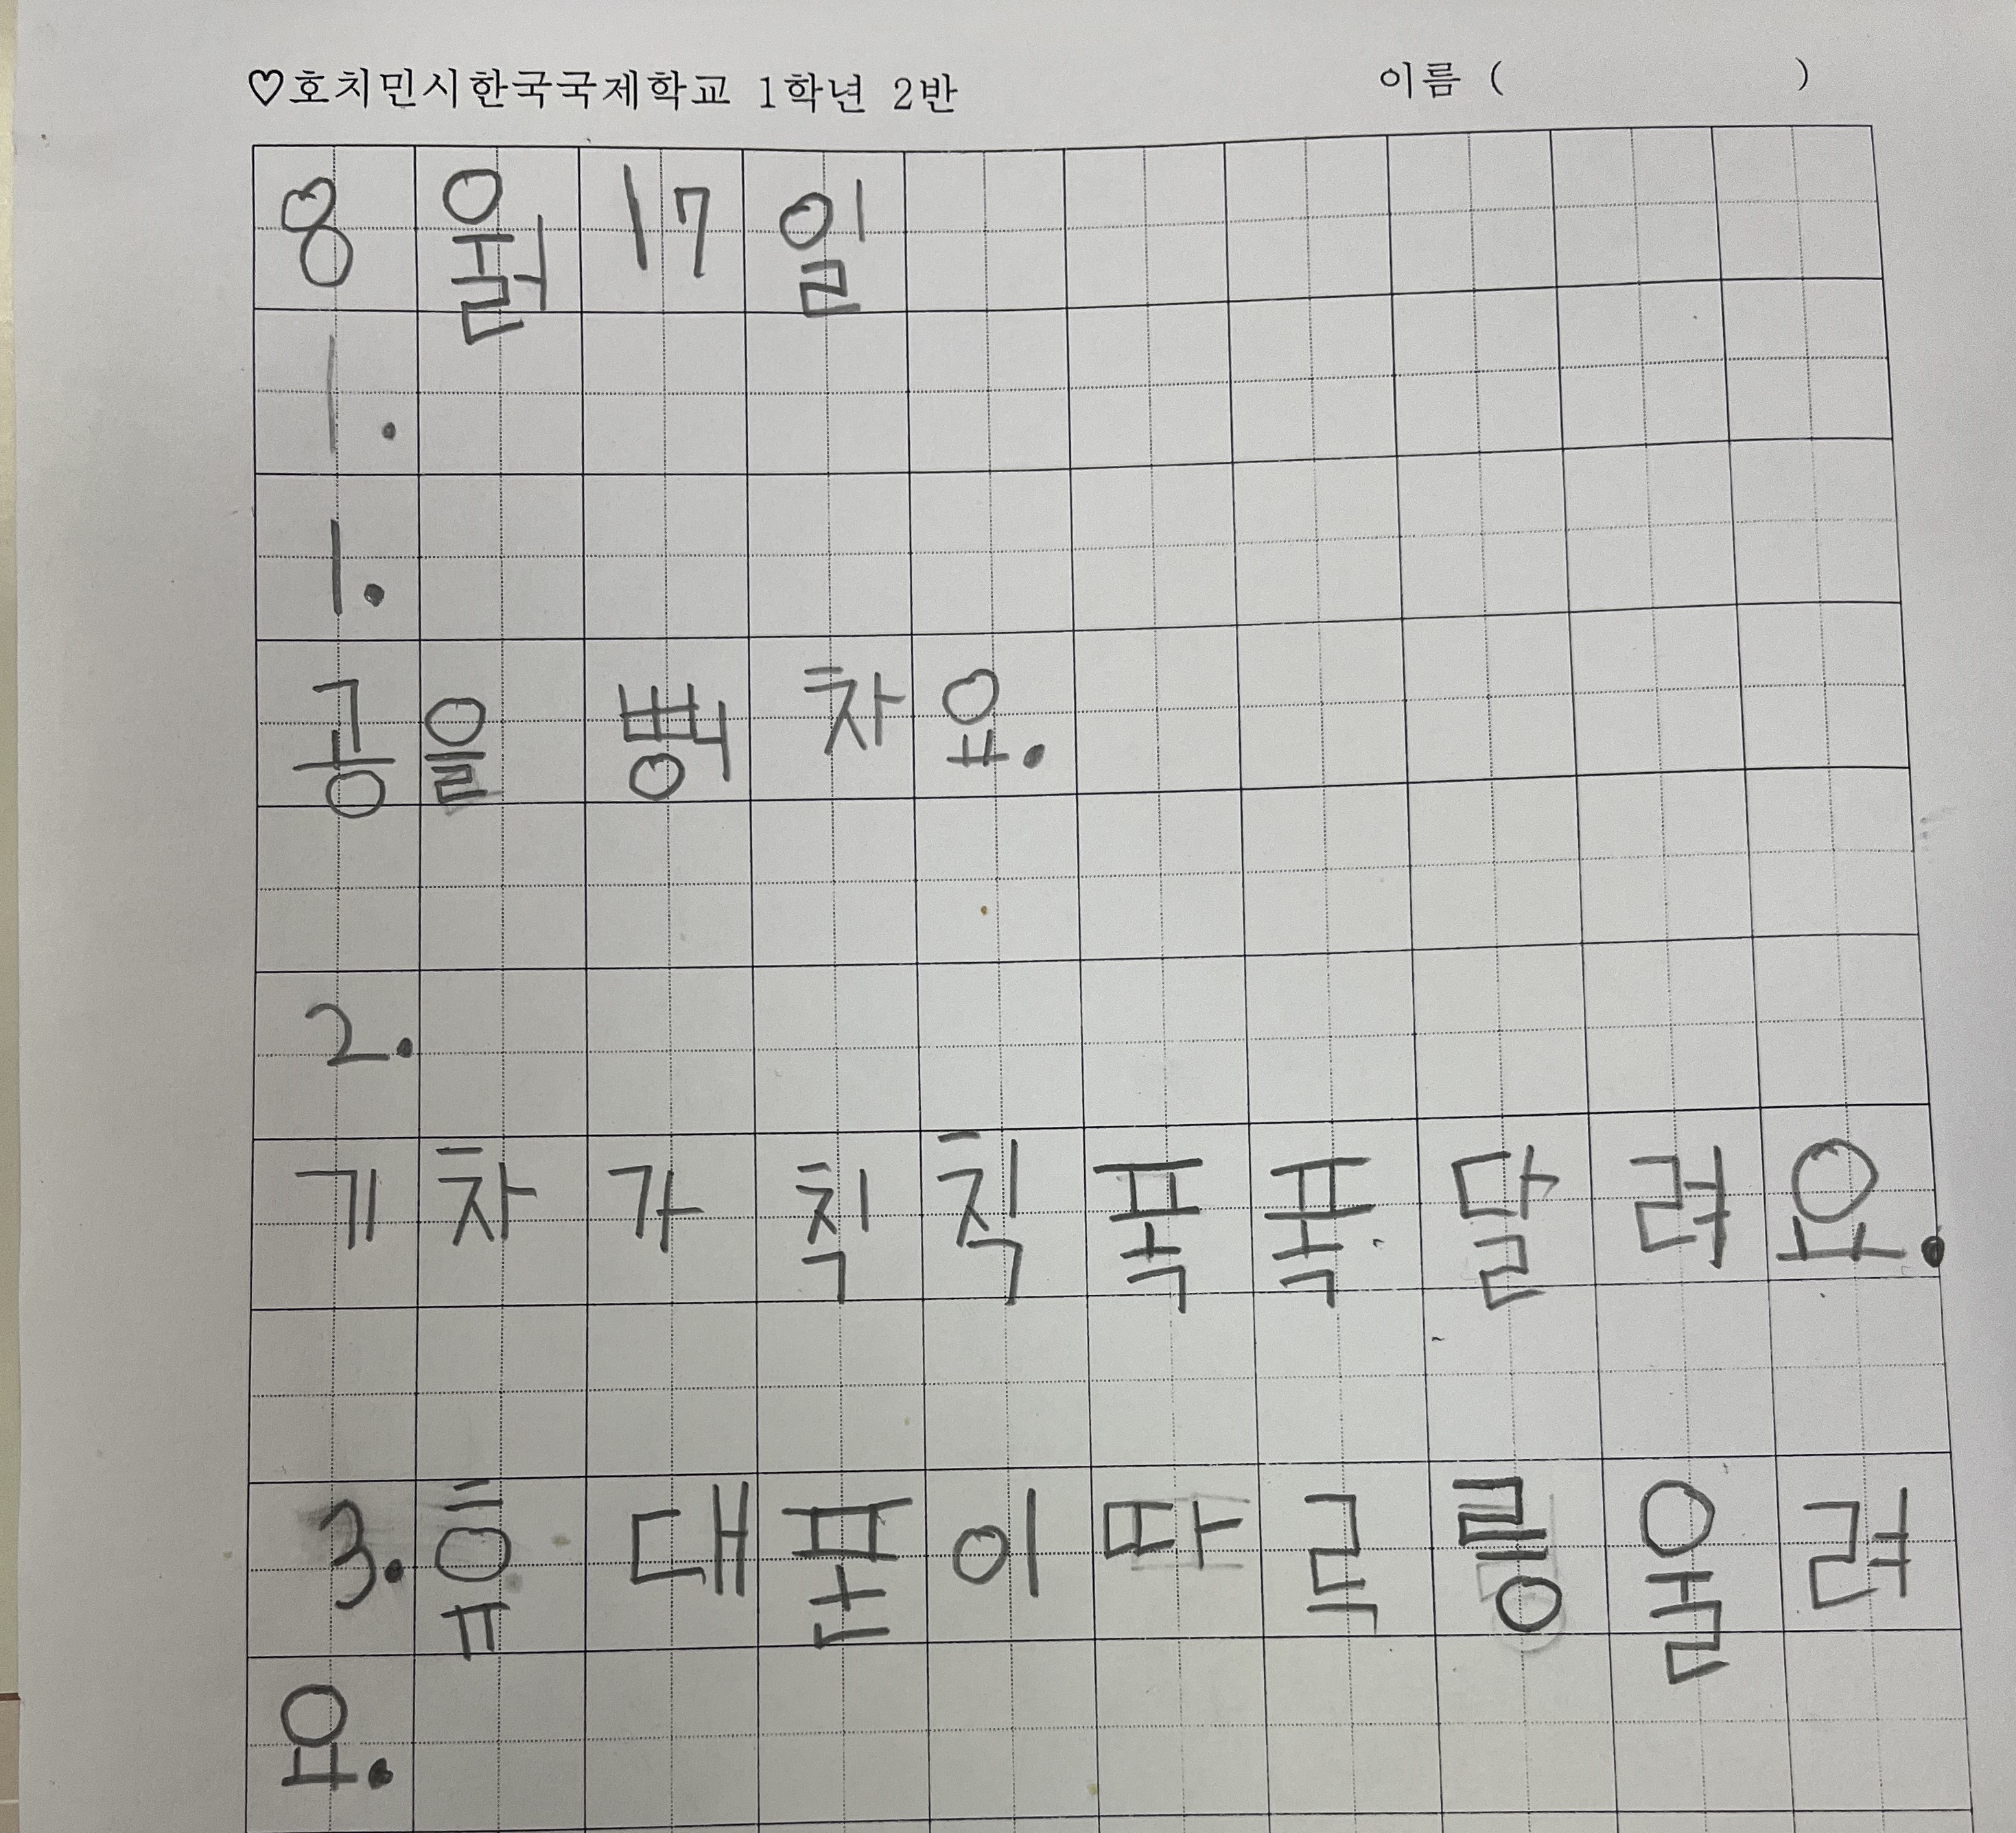 ♡호치민시한국국제학교 1학년 2반 이름 ( )
8월 17일
1.
1.
공을 뻥 차요.
2.
기차가 칙칙폭폭 달려요.
3. 휴대폰이 따르릉 울려
요.